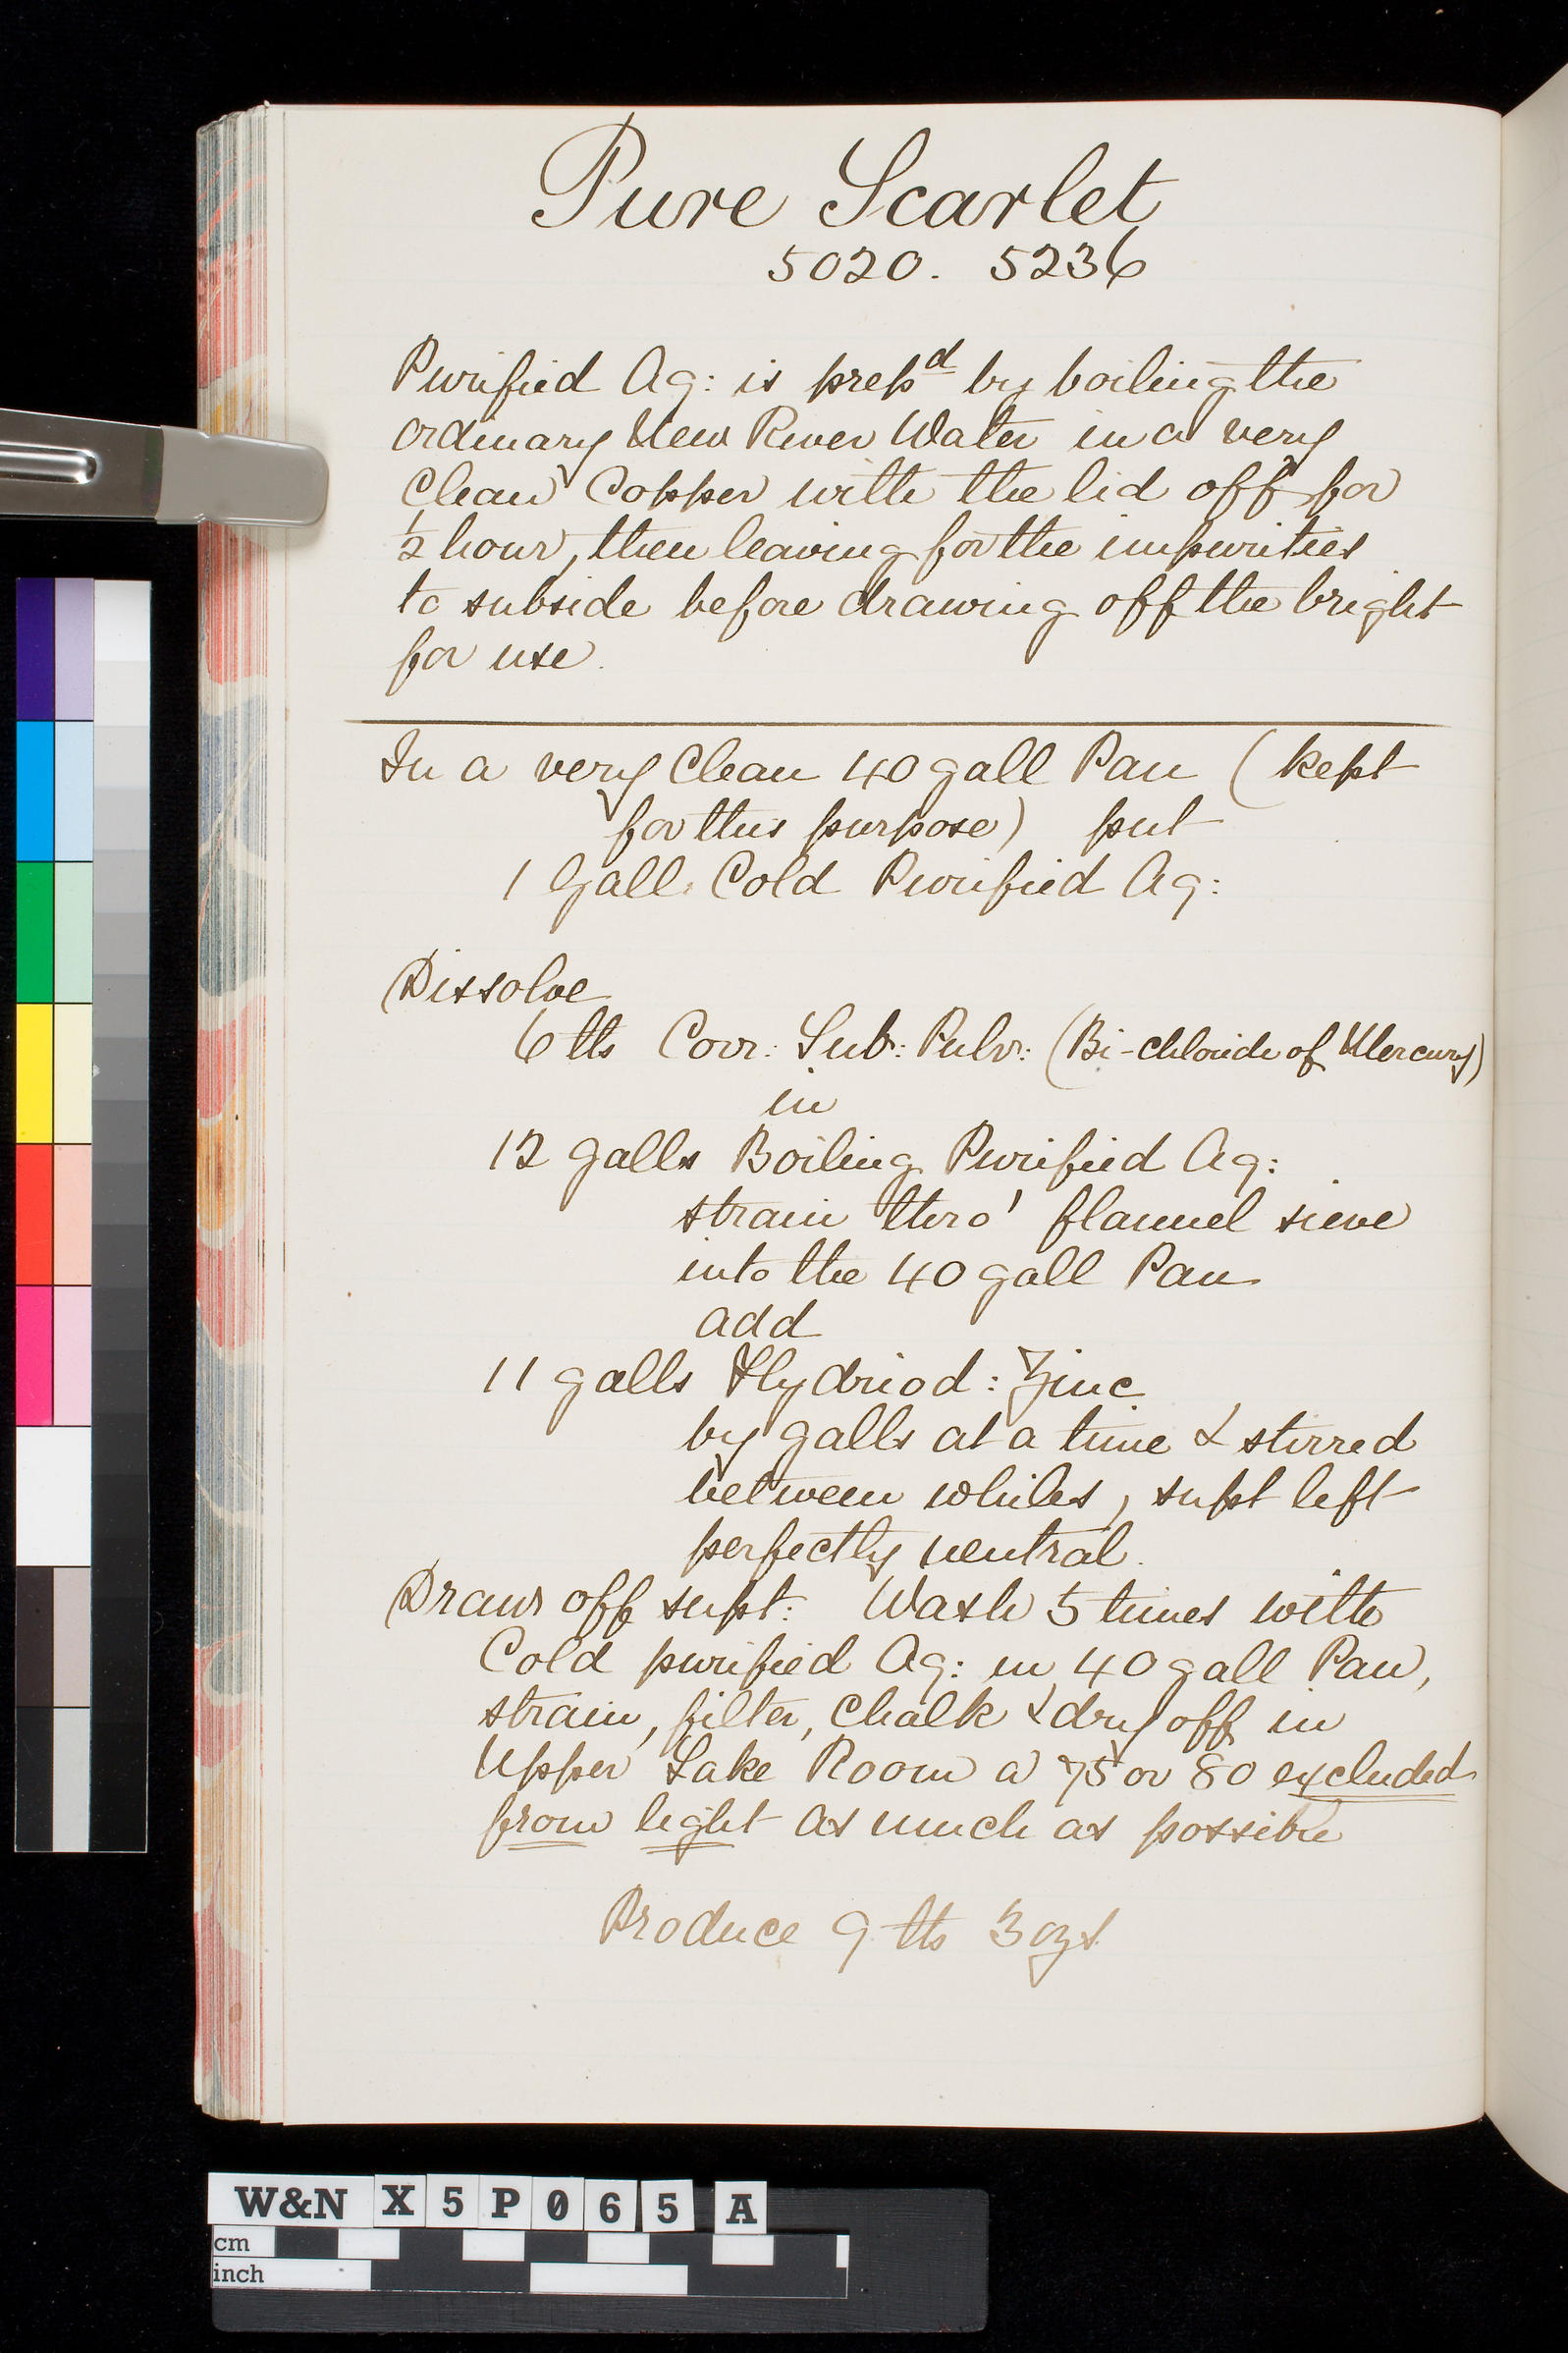 Pure Scarlet
5020. 5236
Purified Aq: is prepd by boiling the
ordinary New River Water in a very
Clean Copper with the lid off for
½ hour, then leaving for the impurities
to subside before drawing off the bright
for use.
In a very Clean 40 gall Pan (kept
for this purpose) put
1 Gall. Cold Purified Aq:
Dissolve
6 lbs Corr: Sub: Pulv: (Bi-chloride of Mercury)
in
12 galls Boiling Purified Aq:
strain thro' flannel sieve
into the 40 gall Pan
add
11 galls Hydriod: Zinc
by galls at a time & stirred
between whiles, supt left
perfectly neutral.
Draw off supt: Wash 5 times with
Cold purified Aq: in 40 gall Pan,
strain, filter, Chalk & dry off in
Upper Lake Room a 75 or 80 excluded
from light as much as possible
Produce 9 lbs 3 ozs
W&N X5P065 A
cm
inch